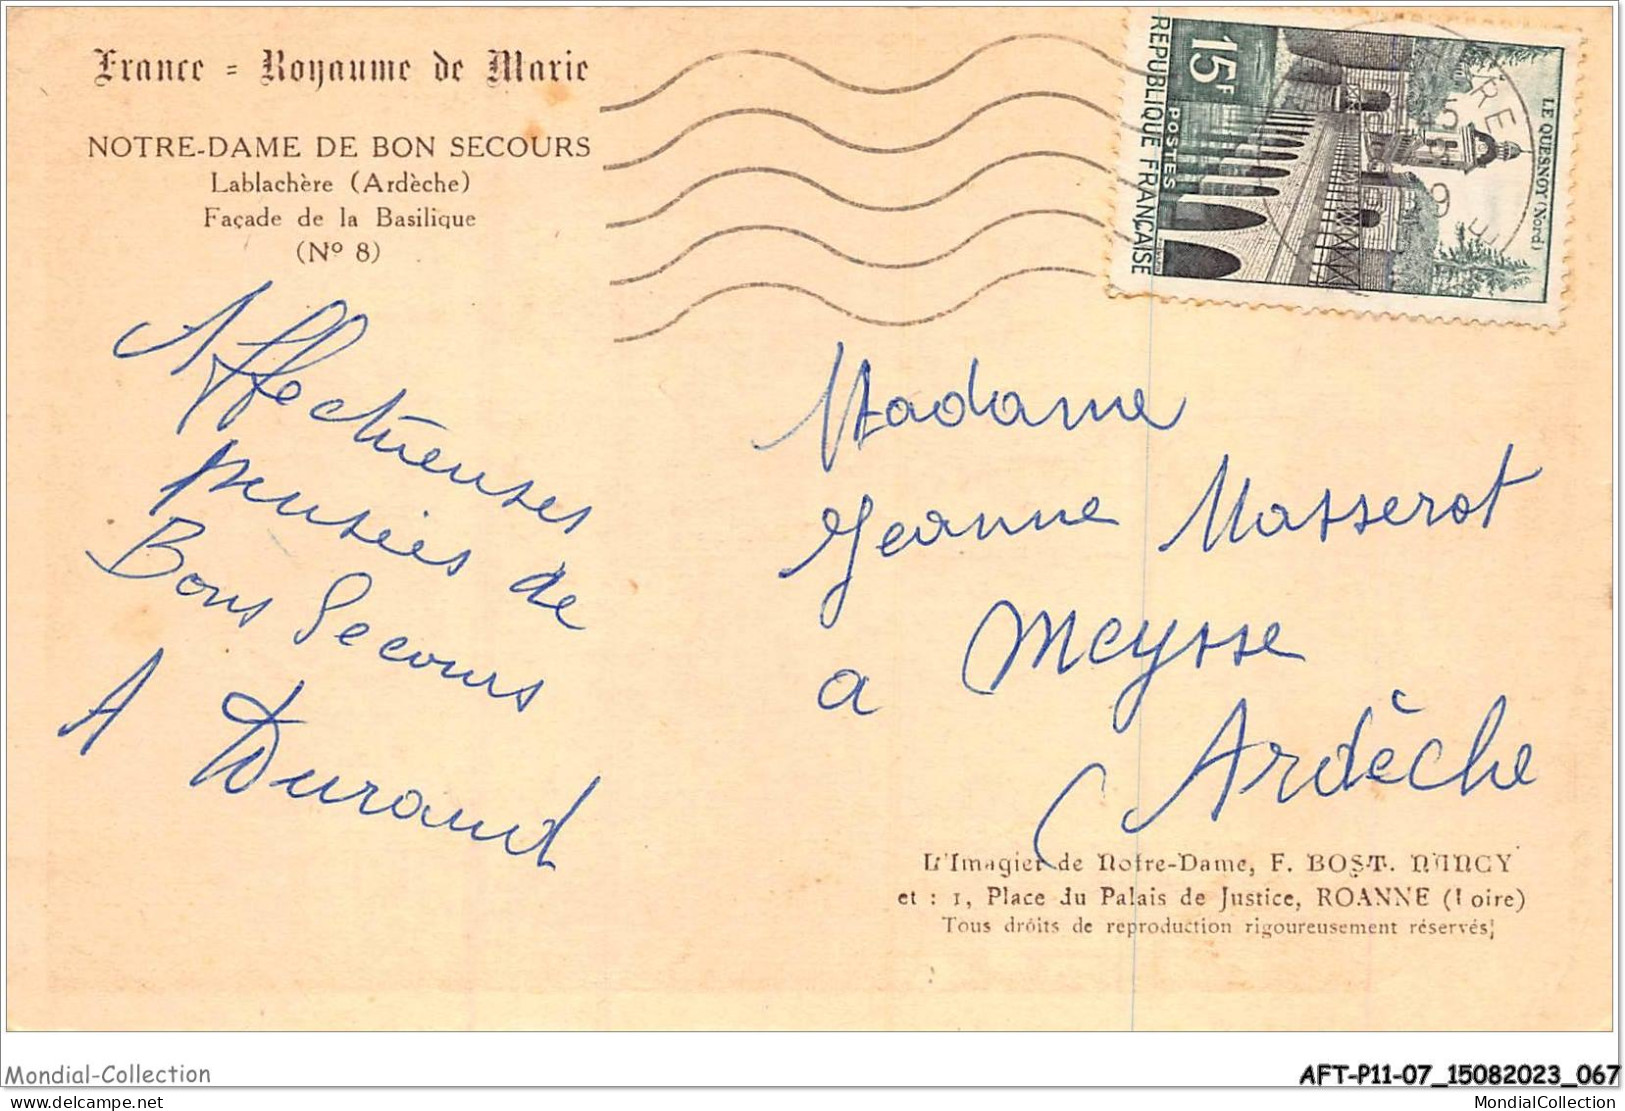 France = Royaume de Marie
NOTRE-DAME DE BON SECOURS
Lablachère (Ardèche)
Façade de la Basilique
(Nº 8)
Affectueuses
pensées de
Bons Secours
A Durand
15F
POSTES
REPUBLIQUE FRANÇAISE
LE QUESNOY (Nord)
Madame
Jeanne Masserot
a Meysse
Ardèche
L'Imagier de Notre-Dame, F. BOST. NANCY
et : 1, Place du Palais de Justice, ROANNE (Loire)
Tous droits de reproduction rigoureusement réservés
Mondial-Collection
AFT-P11-07_15082023_067
delcampe.net
MondialCollection